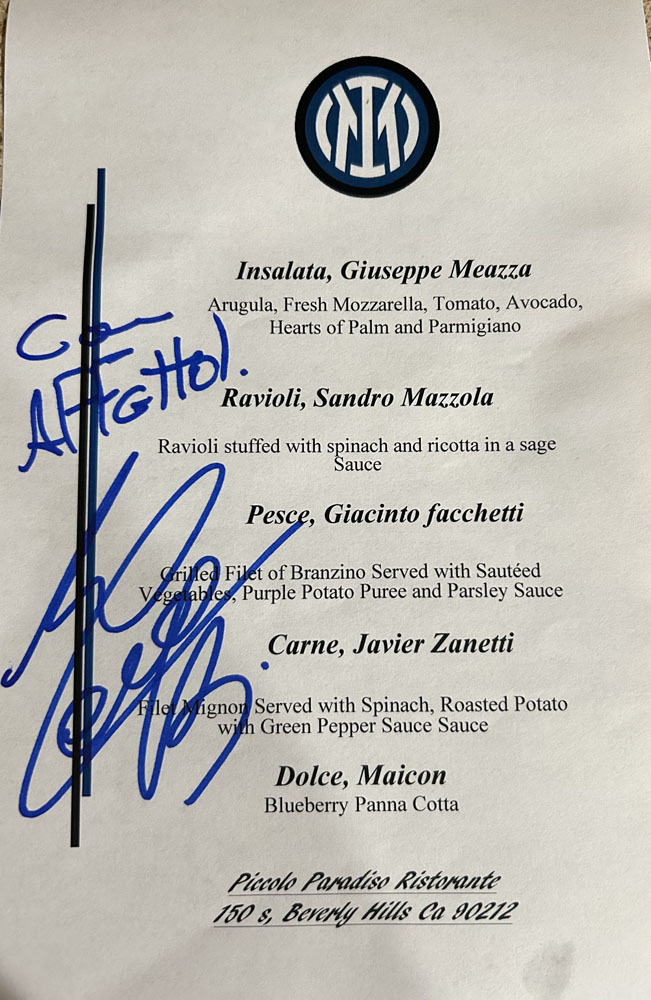 IM
Insalata, Giuseppe Meazza
Arugula, Fresh Mozzarella, Tomato, Avocado,
Hearts of Palm and Parmigiano
Con
AFFETTO!.
Ravioli, Sandro Mazzola
Ravioli stuffed with spinach and ricotta in a sage
Sauce
Pesce, Giacinto facchetti
Grilled Filet of Branzino Served with Sautéed
Vegetables, Purple Potato Puree and Parsley Sauce
Carne, Javier Zanetti
Filet Mignon Served with Spinach, Roasted Potato
with Green Pepper Sauce Sauce
Dolce, Maicon
Blueberry Panna Cotta
Piccolo Paradiso Ristorante
150 s, Beverly Hills Ca 90212